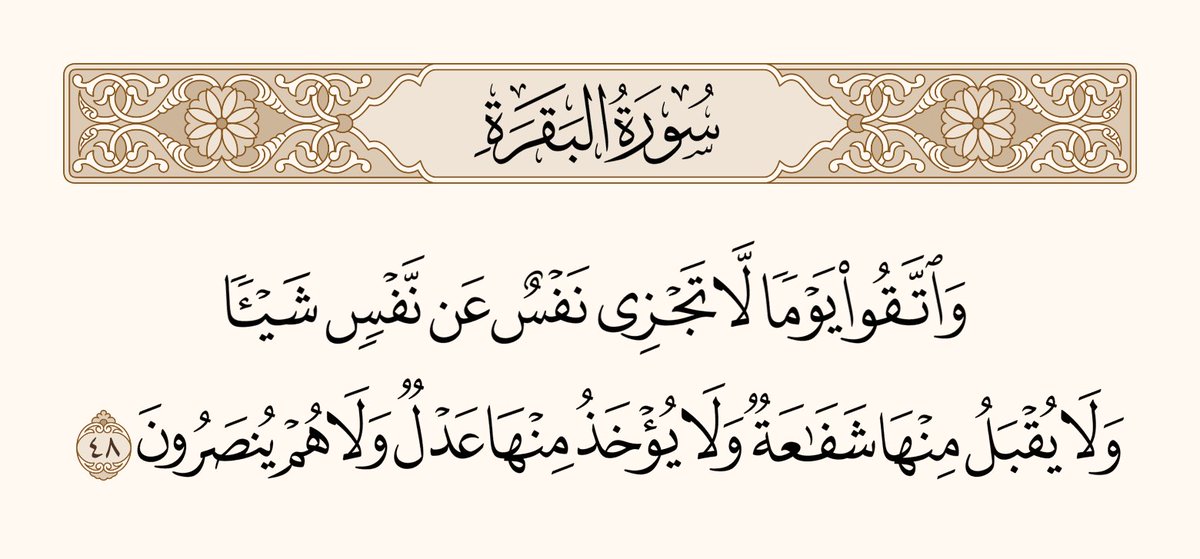 سُورَةُ البَقَرَةِ
وَٱتَّقُوا۟ يَوْمًا لَّا تَجْزِى نَفْسٌ عَن نَّفْسٍ شَيْـًٔا
وَلَا يُقْبَلُ مِنْهَا شَفَـٰعَةٌ وَلَا يُؤْخَذُ مِنْهَا عَدْلٌ وَلَا هُمْ يُنصَرُونَ ٤٨